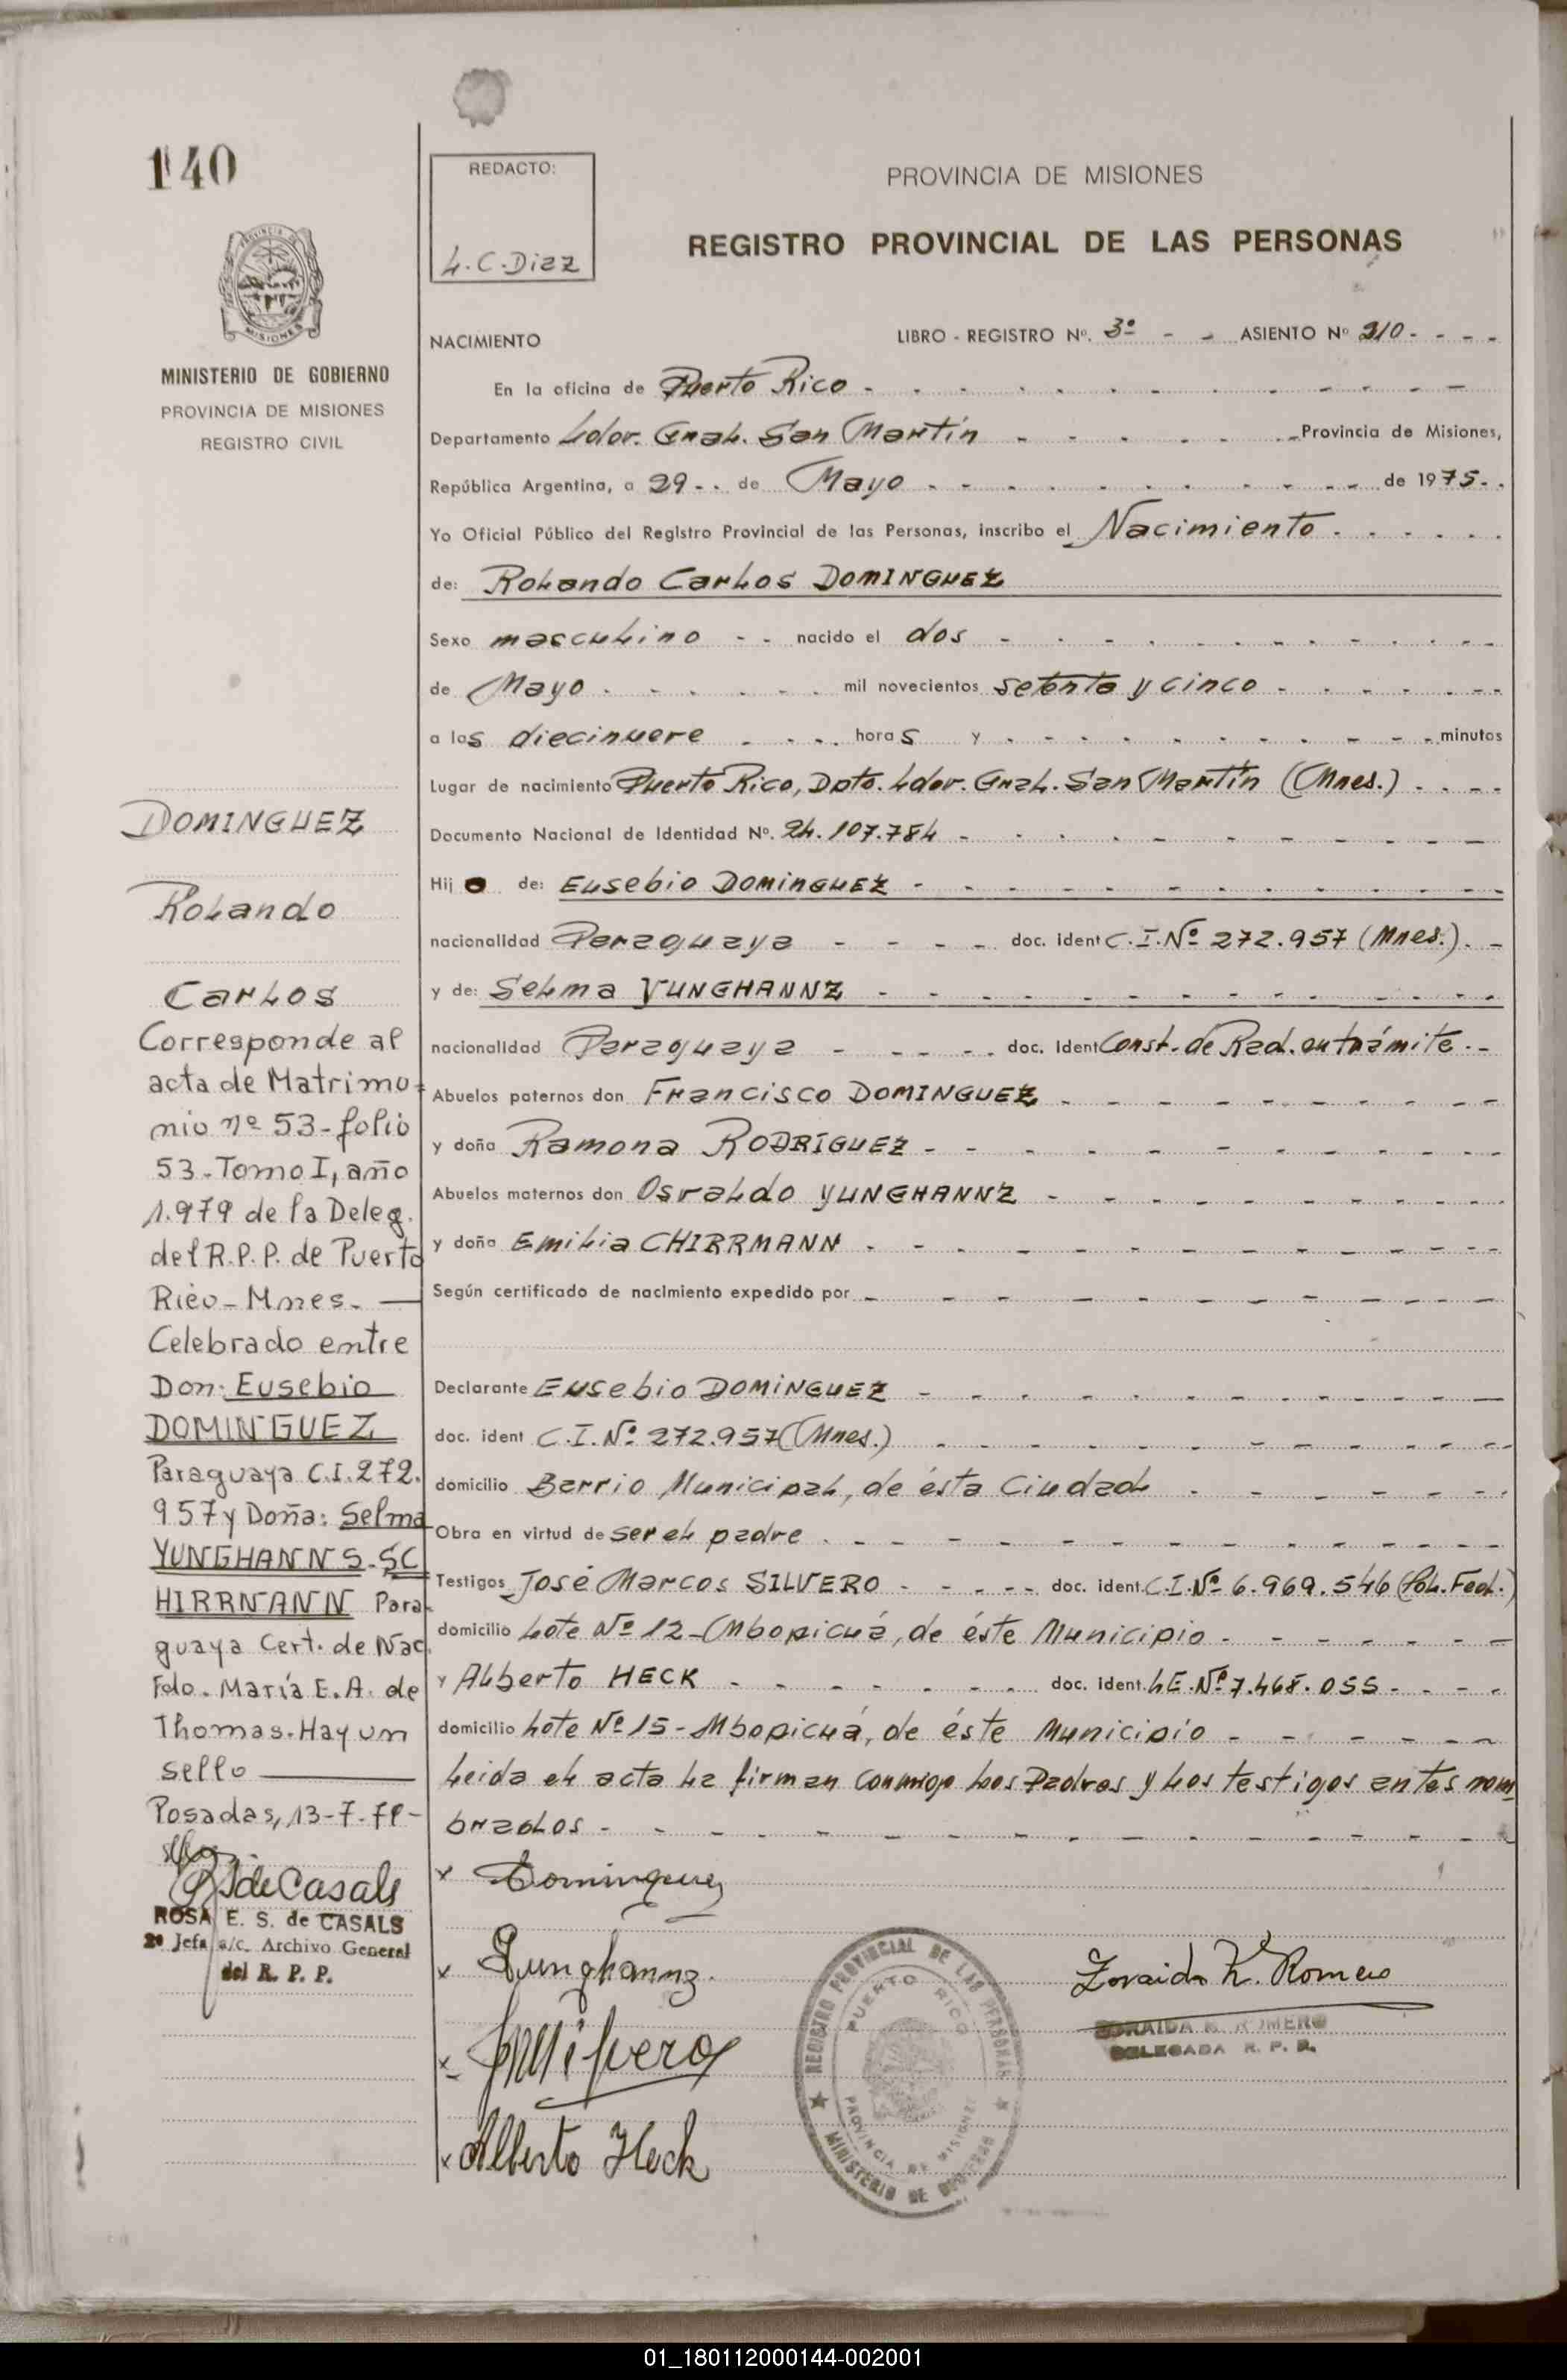 140
MINISTERIO DE GOBIERNO
PROVINCIA DE MISIONES
REGISTRO CIVIL
DOMINGUEZ
Rolando
Carlos
Corresponde al
acta de Matrimo=
nio nº 53-folio
53-Tomo I, año
1.979 de la Deleg.
del R.P.P. de Puerto
Rico-Mnes.
Celebrado entre
Don: Eusebio
DOMINGUEZ
Paraguaya C.I. 272.
957 y Doña: Selma
YUNGHANNS-SC
HIRRNANN Para
guaya Cert. de Nac.
Fdo. María E.A. de
Thomas-Hay un
sello
Posadas, 13-7-79-
de Casals
ROSA E. S. de CASALS
2ª Jefa a/c. Archivo General
del R. P. P.
REDACTO:
L.C. Diaz
PROVINCIA DE MISIONES
REGISTRO PROVINCIAL DE LAS PERSONAS
NACIMIENTO LIBRO - REGISTRO Nº. 3º - - ASIENTO Nº 210 - - - -
En la oficina de Puerto Rico
Departamento Ldor. Gral. San Martín Provincia de Misiones,
República Argentina, a 29 - . de Mayo de 1975 - .
Yo Oficial Público del Registro Provincial de las Personas, inscribo el Nacimiento
de: Rolando Carlos DOMINGUEZ
Sexo masculino - - nacido el dos
de Mayo mil novecientos setenta y cinco
a las diecinueve horas y minutos
Lugar de nacimiento Puerto Rico, Dpto. Ldor. Gral. San Martín (Mnes.)
Documento Nacional de Identidad Nº. 24.107.784
Hijo de: Eusebio DOMINGUEZ
nacionalidad Paraguaya doc. ident C.I.Nº 272.957 (Mnes.)
y de: Selma YUNGHANNZ
nacionalidad Paraguaya doc. ident Const. de Rad. en trámite
Abuelos paternos don Francisco DOMINGUEZ
y doña Ramona RODRÍGUEZ
Abuelos maternos don Osvaldo YUNGHANNZ
y doña Emilia CHIRRMANN
Según certificado de nacimiento expedido por
Declarante Eusebio DOMINGUEZ
doc. ident C.I.Nº 272.957 (Mnes.)
domicilio Barrio Municipal, de ésta Ciudad
Obra en virtud de ser el padre
Testigos José Marcos SILVERO doc. ident. C.I.Nº 6.969.546 (Pol. Fed.)
domicilio Lote Nº 12-Mbopicuá, de éste Municipio
y Alberto HECK doc. ident. L.E.Nº 7.468.055
domicilio Lote Nº 15-Mbopicuá, de éste Municipio
Leida el acta la firman conmigo los Padres y los testigos antes nom
brados
x Dominguez
x Yunghannz.
x JMSilvero
x Alberto Heck
REGISTRO PROVINCIAL DE LAS PERSONAS
PUERTO RICO
PROVINCIA DE MISIONES
MINISTERIO DE GOBIERNO
Zoraida K. Romero
ZORAIDA K. ROMERO
DELEGADA R. P. P.
01_180112000144-002001